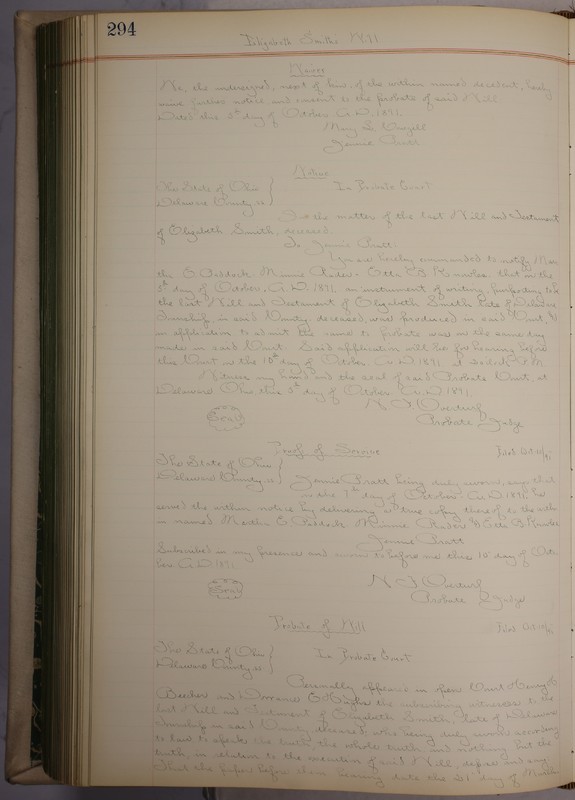 294
Elizabeth Smith's Will
Waiver
We, the undersigned, next of kin, of the within named decedent, hereby
waive further notice and consent to the probate of said Will.
Dated this 5th day of October A.D. 1891.
Mary L.
Jennie Pratt
Notice
The State of Ohio }
Delaware County ss } In Probate Court
In the matter of the last Will and Testament
of Elizabeth Smith, deceased.
To Jennie Pratt:
You are hereby commanded to notify Mar-
tha E Paddock Minnie & Otto B Knowles, that on the
5th day of October, A.D. 1891, an instrument of writing, purporting to be
the last Will and Testament of Elizabeth Smith late of Delaware
Township, in said County, deceased, was produced in said Court, &
an application to admit the same to probate was on the same day
made in said Court. Said application will be for hearing before
this Court on the 10th day of October A.D. 1891 at o'clock A.M.
Witness my hand and the seal of said Probate Court, at
Delaware Ohio this 5th day of October A.D. 1891.
Seal
N. J. Overturf
Probate Judge
Proof of Service
Filed Oct
The State of Ohio }
Delaware County ss } Jennie Pratt being duly sworn, says that
on the 7th day of October A.D. 1891 he
served the within notice by delivering a true copy thereof to the with
in named Martha E Paddock Minnie & Otto B Knowles
Jennie Pratt
Subscribed in my presence and sworn to before me this 10 day of Octo-
ber A.D. 1891.
Seal
N J Overturf
Probate Judge
Probate of Will
Filed Oct
The State of Ohio }
Delaware County ss } In Probate Court
Personally appeared in open Court Henry
Beecher and E Hughes the subscribing witnesses to the
last Will and Testament of Elizabeth Smith, late of Delaware
Township in said County, deceased, who being duly sworn according
to law to speak the truth, the whole truth and nothing but the
truth, in relation to the execution of said Will, depose and say
That the paper before them bearing date the 21st day of March